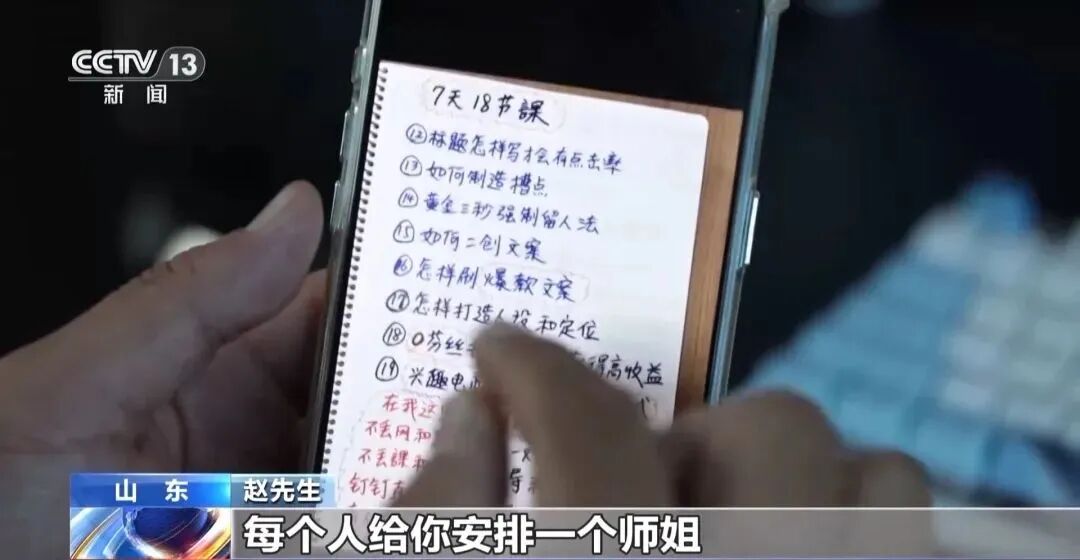 CCTV 13
新闻
7天18节課
⑫标题怎样写才会有点击率
⑬如何制造槽点
⑭黄金三秒强制留人法
⑮如何二创文案
⑯怎样刷爆款文案
⑰怎样打造人设和定位
⑱0芬丝 得高收益
⑲兴趣电
在我这
不丢网和
不丢課和
钉钉
山东
赵先生
每个人给你安排一个师姐